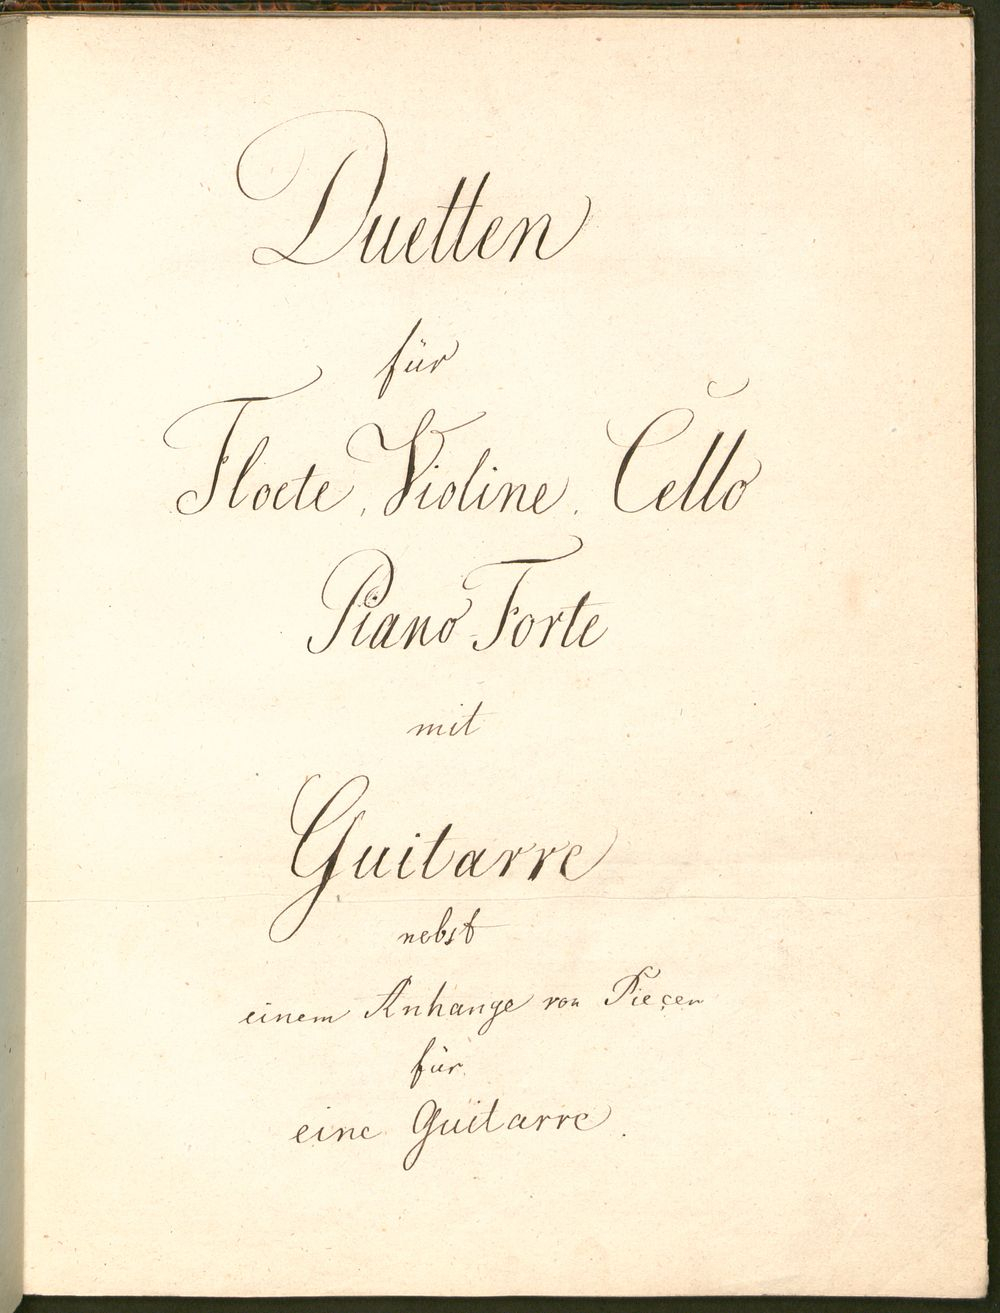 Duetten
für
Floete, Violine, Cello
Piano-Forte
mit
Guitarre
nebst
einem Anhange von Pieçen
für
eine Guitarre.